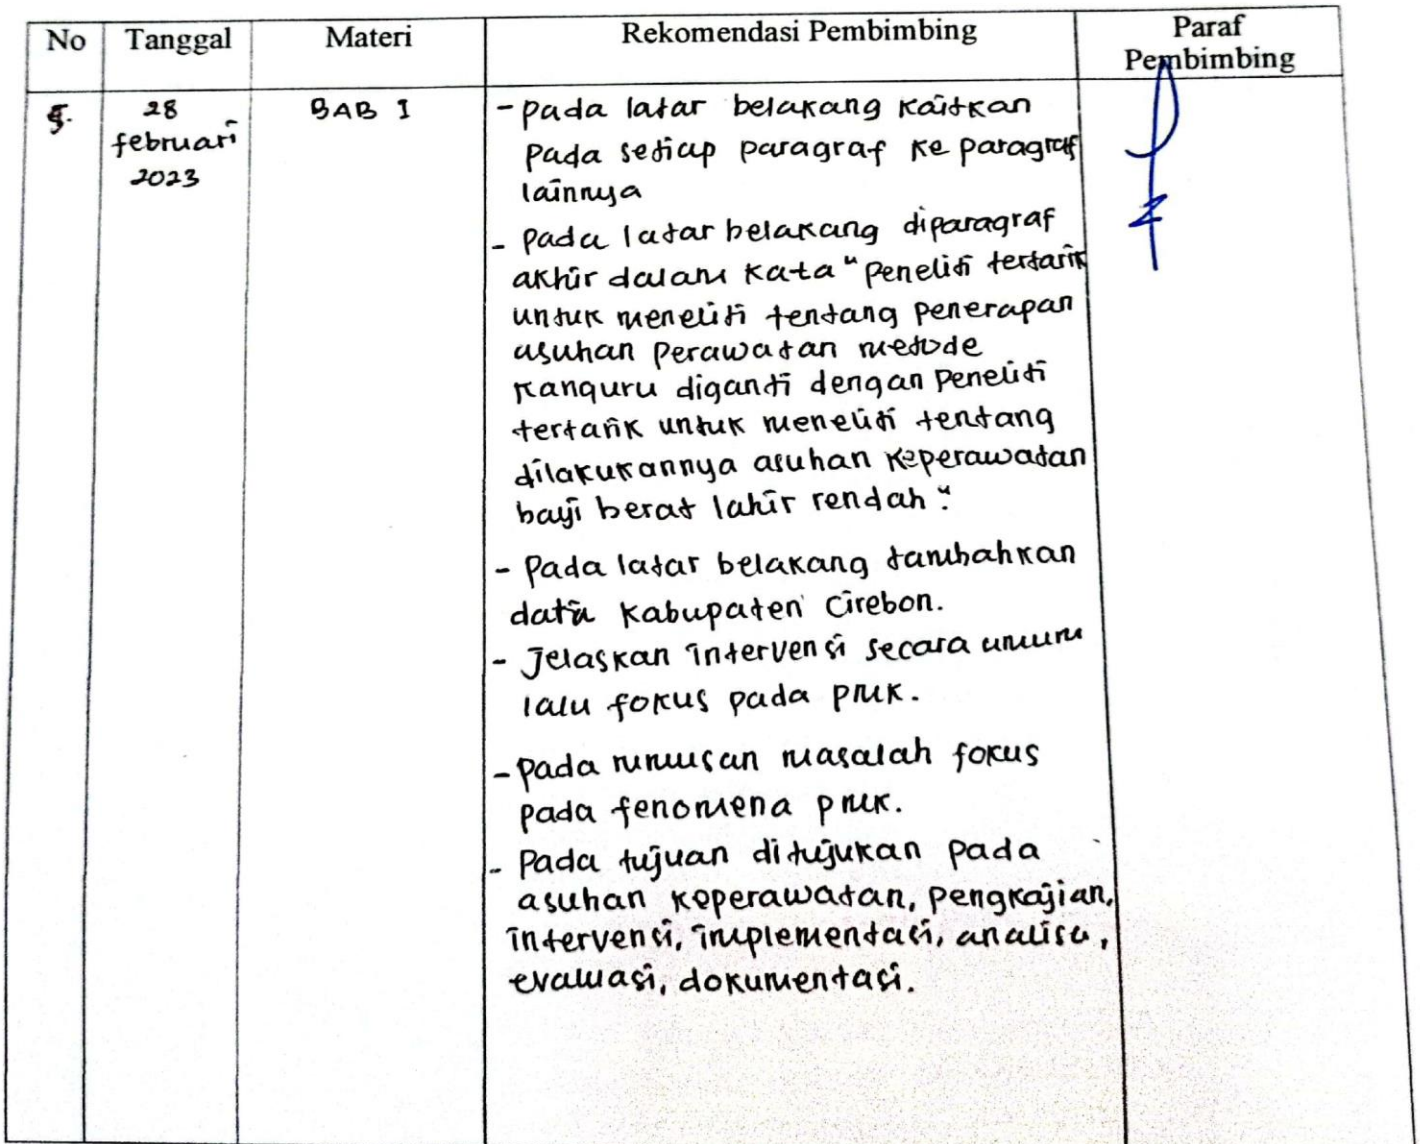 No Tanggal Materi Rekomendasi Pembimbing Paraf
Pembimbing
5. 28 BAB I - pada latar belakang kaitkan
februari pada setiap paragraf ke paragraf
2023 lainnya
- pada latar belakang diparagraf
akhir dalam kata "peneliti tertarik
untuk meneliti tentang penerapan
asuhan perawatan metode
kanguru diganti dengan peneliti
tertarik untuk meneliti tentang
dilakukannya asuhan keperawatan
bayi berat lahir rendah".
- pada latar belakang tambahkan
data kabupaten cirebon.
- Jelaskan intervensi secara umum
lalu fokus pada pmk.
- pada rumusan masalah fokus
pada fenomena pmk.
- pada tujuan ditujukan pada
asuhan keperawatan, pengkajian,
intervensi, implementasi, analisa,
evaluasi, dokumentasi.